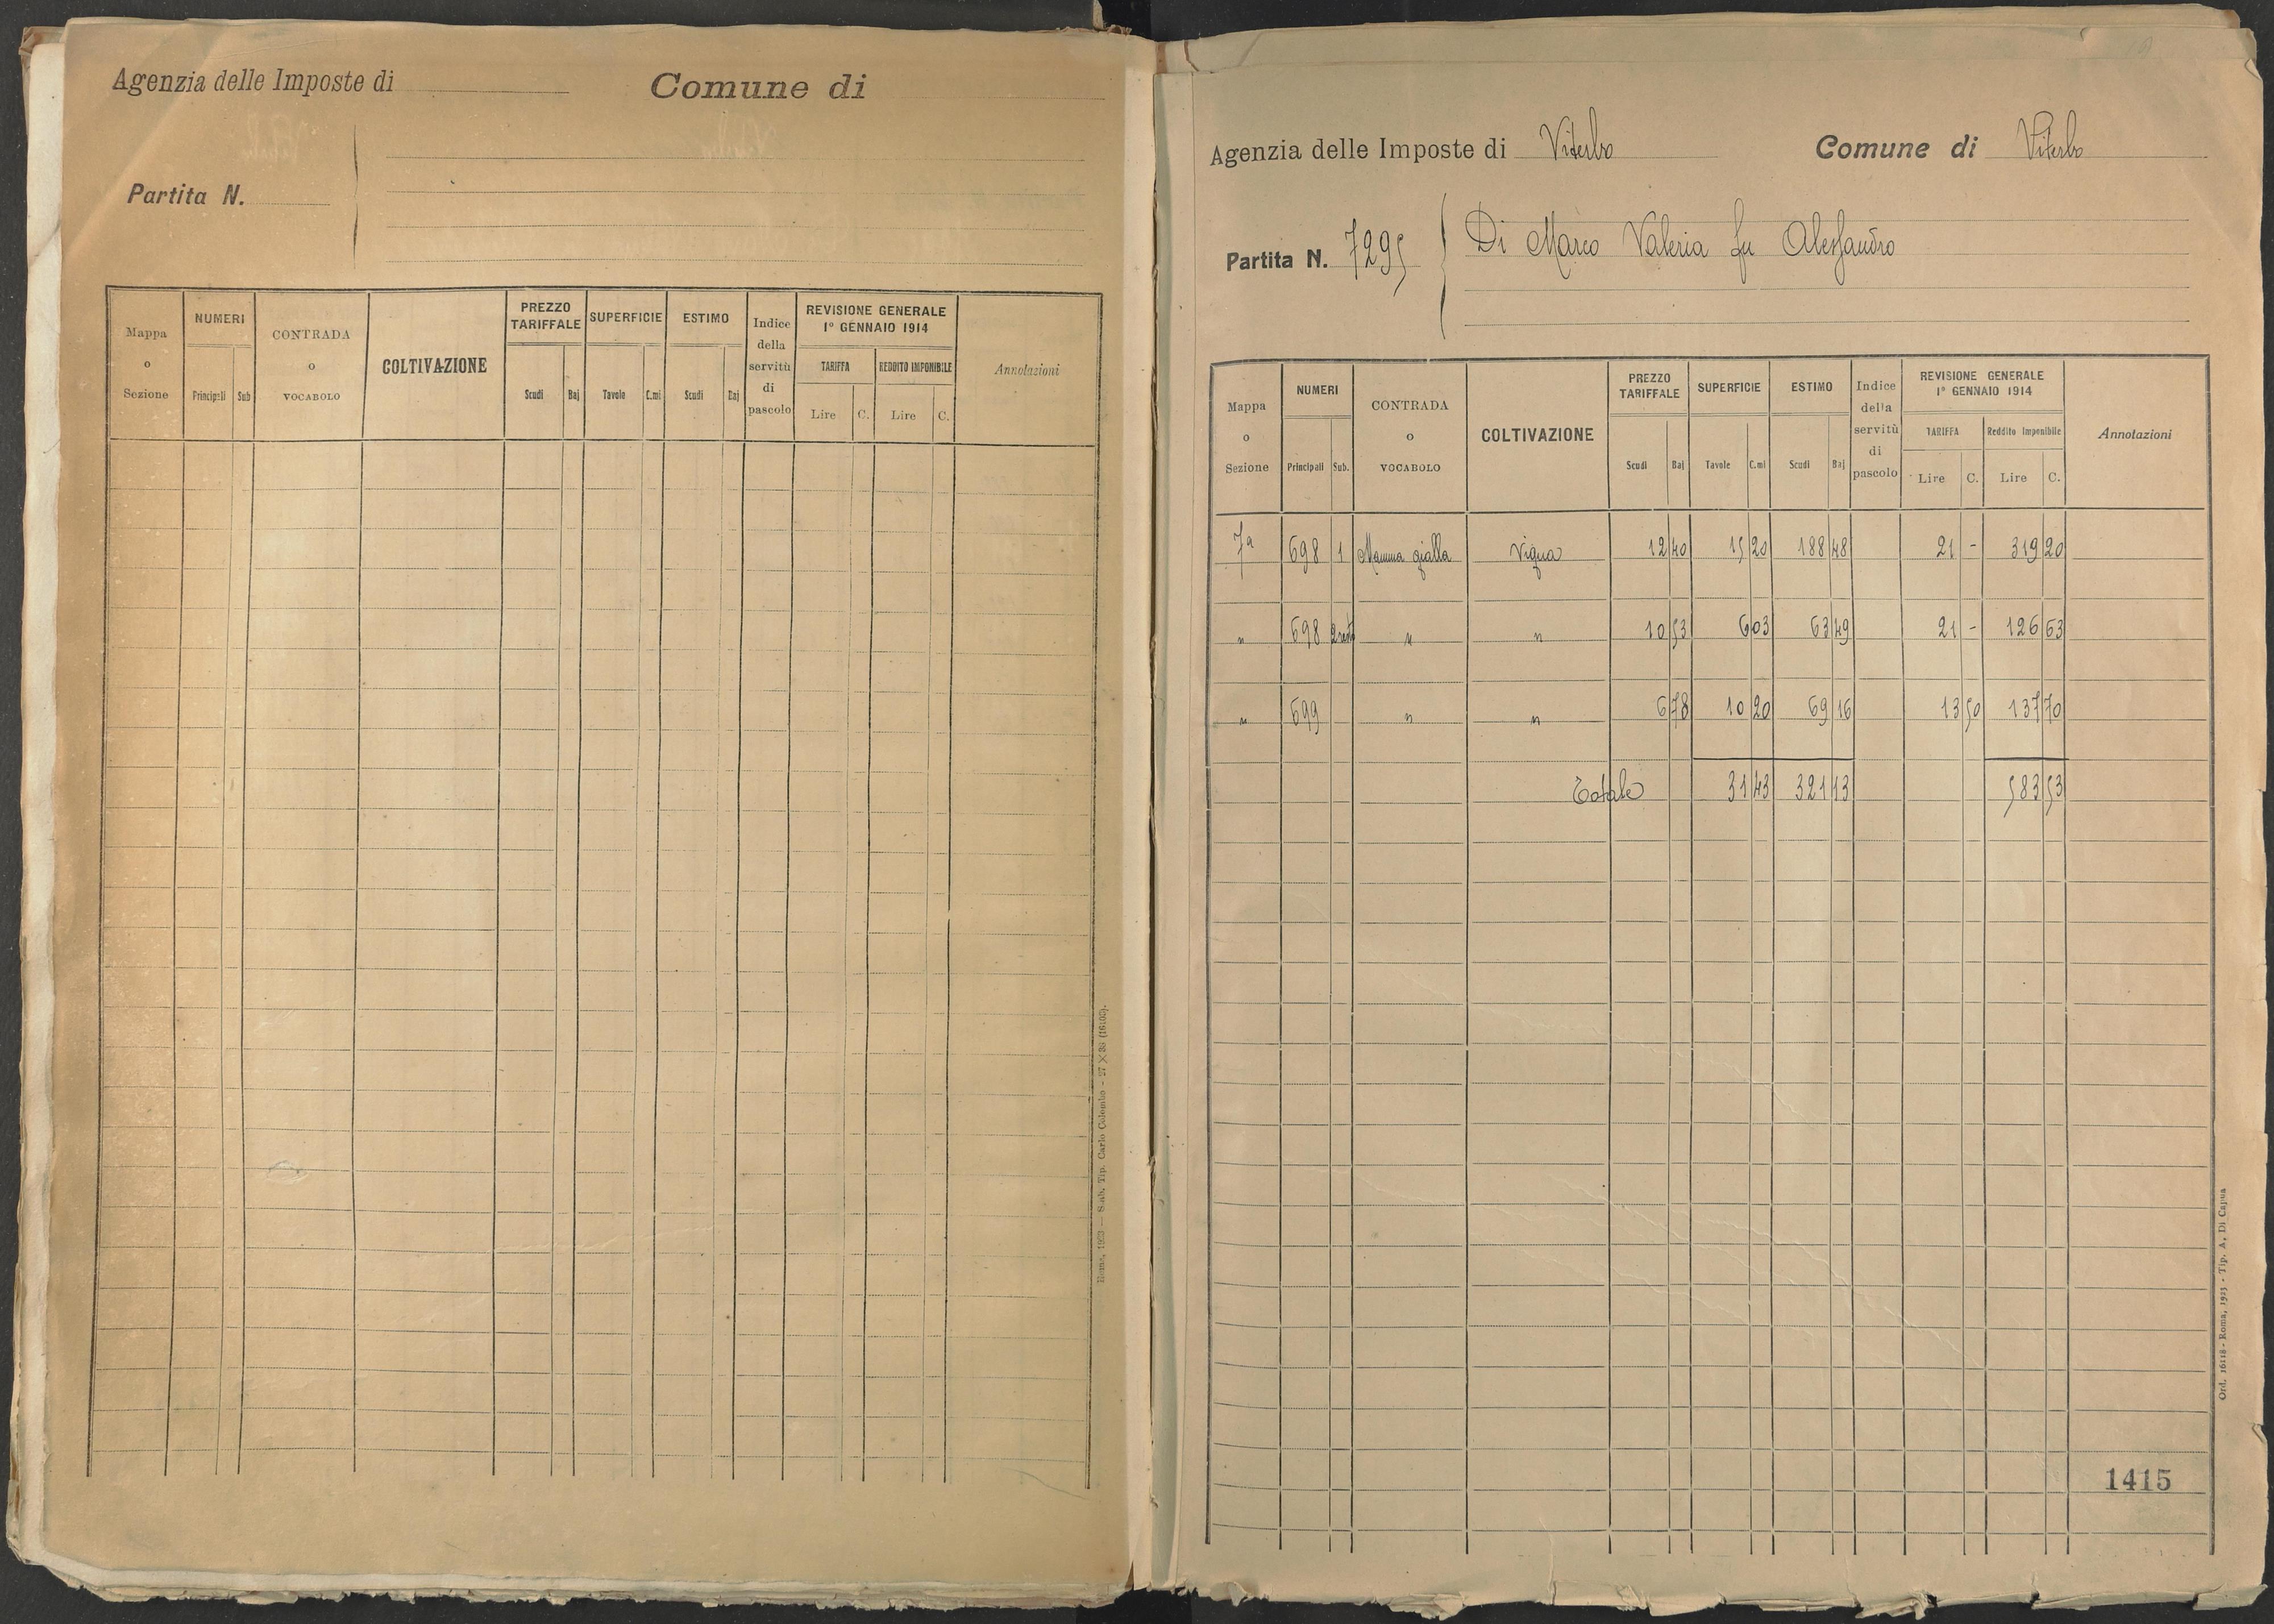 Agenzia delle Imposte di Comune di
Partita N.
Mappa o Sezione NUMERI Principali Sub CONTRADA o VOCABOLO COLTIVAZIONE PREZZO TARIFFALE Scudi Baj SUPERFICIE Tavole C.mi ESTIMO Scudi Baj Indice della servitù di pascolo REVISIONE GENERALE 1° GENNAIO 1914 TARIFFA Lire C. REDDITO IMPONIBILE Lire C. Annotazioni
Roma, 1923 — Stab. Tip. Carlo Colombo - 27 X 38 (16103).
Agenzia delle Imposte di Viterbo Comune di Viterbo
Partita N. 7295 Di Marco Valeria fu Alessandro
Mappa o Sezione NUMERI Principali Sub. CONTRADA o VOCABOLO COLTIVAZIONE PREZZO TARIFFALE Scudi Baj SUPERFICIE Tavole C.mi ESTIMO Scudi Baj Indice della servitù di pascolo REVISIONE GENERALE 1° GENNAIO 1914 TARIFFA Lire C. Reddito Imponibile Lire C. Annotazioni
7a 698 1 Mamma gialla Vigna 12 40 15 20 188 48 21 - 319 20
" 698 " " 10 53 6 03 63 49 21 - 126 63
" 699 " " 6 78 10 20 69 16 13 50 137 70
Totale 31 43 321 13 583 53
1415
Ord. 16118 - Roma, 1923 - Tip. A. Di Capua